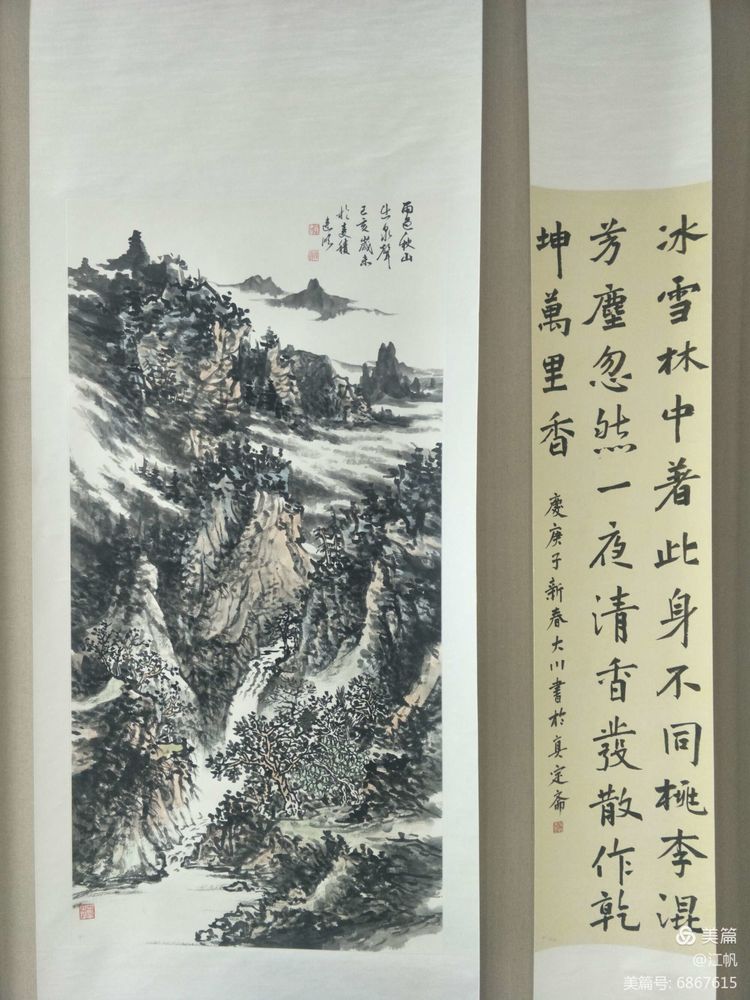 雨色秋山
出泉聲
己亥歲末
於
冰雪林中著此身不同桃李混
芳塵忽然一夜清香發散作乾
坤萬里香
慶庚子新春大川書於真定齋
美篇
@江帆
美篇号: 6867615